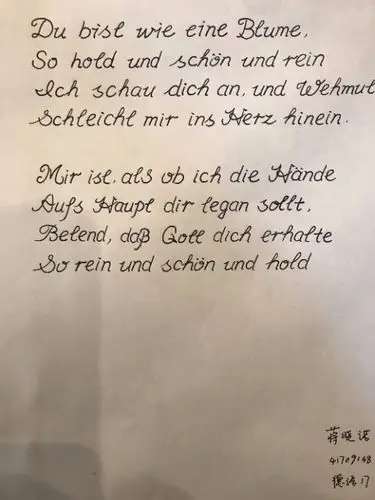 Du bist wie eine Blume,
So hold und schön und rein
Ich schau dich an, und Wehmut
Schleicht mir ins Herz hinein.
Mir ist, als ob ich die Hände
Aufs Haupt dir legan sollt,
Betend, daß Gott dich erhalte
So rein und schön und hold
蒋晓诺
41709148
德语17